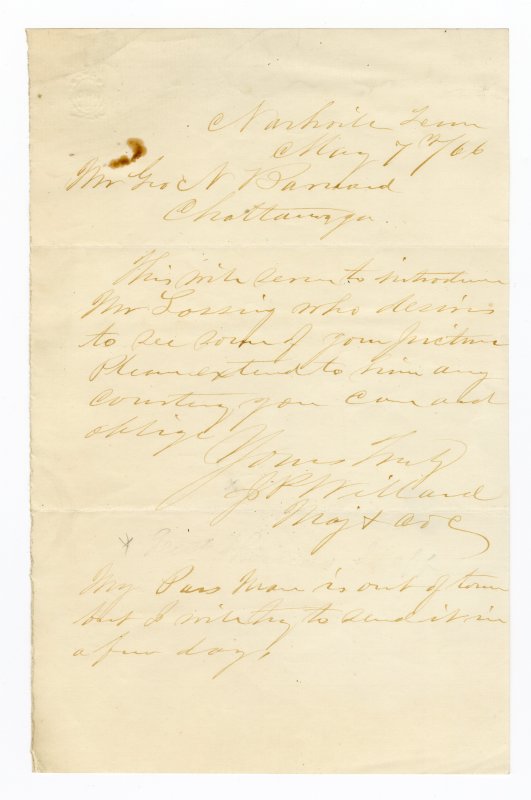 Nashville Tenn
May 7th/66
Mr Geo N Barnard
Chattanooga
This will serve to introduce
Mr Lossing who desires
to see some of your picture
Please extend to him any
courtesy you can and
oblige
Yours Truly
J P Willard
Maj & ADC
My Pass Man is out of town
but I will try to send it in
a few days